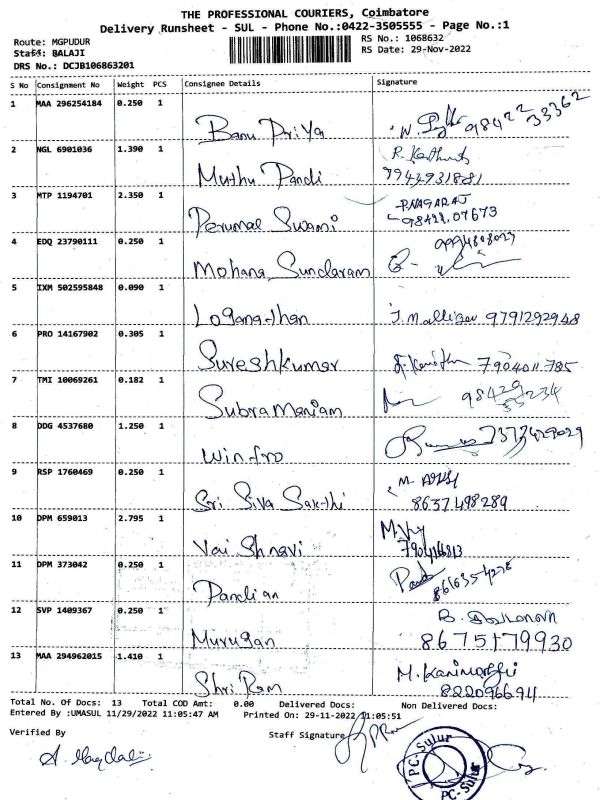 THE PROFESSIONAL COURIERS, Coimbatore
Delivery Runsheet - SUL - Phone No.:0422-3505555 - Page No.:1
Route: MGPUDUR
RS No.: 1068632
Staff: BALAJI
RS Date: 29-Nov-2022
DRS No.: DCJB106863201
S No Consignment No Weight PCS Consignee Details Signature
1 MAA 296254184 0.250 1 Banu Priya 98422 33362
2 NGL 6901036 1.390 1 Muthu Pandi
3 MTP 1194701 2.350 1 Perumal Swami P.NAGARAJ
4 EDQ 23790111 0.250 1 Mohana Sundaram
5 IXM 502595848 0.090 1 Loganathan 9791292948
6 PRO 14167902 0.305 1 Sureshkumar 7904011785
7 TMI 10069261 0.182 1 Subramaniam 98429
8 DDG 4537680 1.250 1 Winfro
9 RSP 1760469 0.250 1 Sri Siva Sakthi
8637498289
10 DPM 659013 2.795 1 Vaishnavi
11 DPM 373042 0.250 1 Pandian
12 SVP 1409367 0.250 1 Murugan
8675179930
13 MAA 294962015 1.410 1 Shri Ram
Total No. Of Docs: 13 Total COD Amt: 0.00 Delivered Docs: Non Delivered Docs:
Entered By :UMASUL 11/29/2022 11:05:47 AM Printed On: 29-11-2022 11:05:51
Verified By Staff Signature
PC-Sulur
PC-Sulur